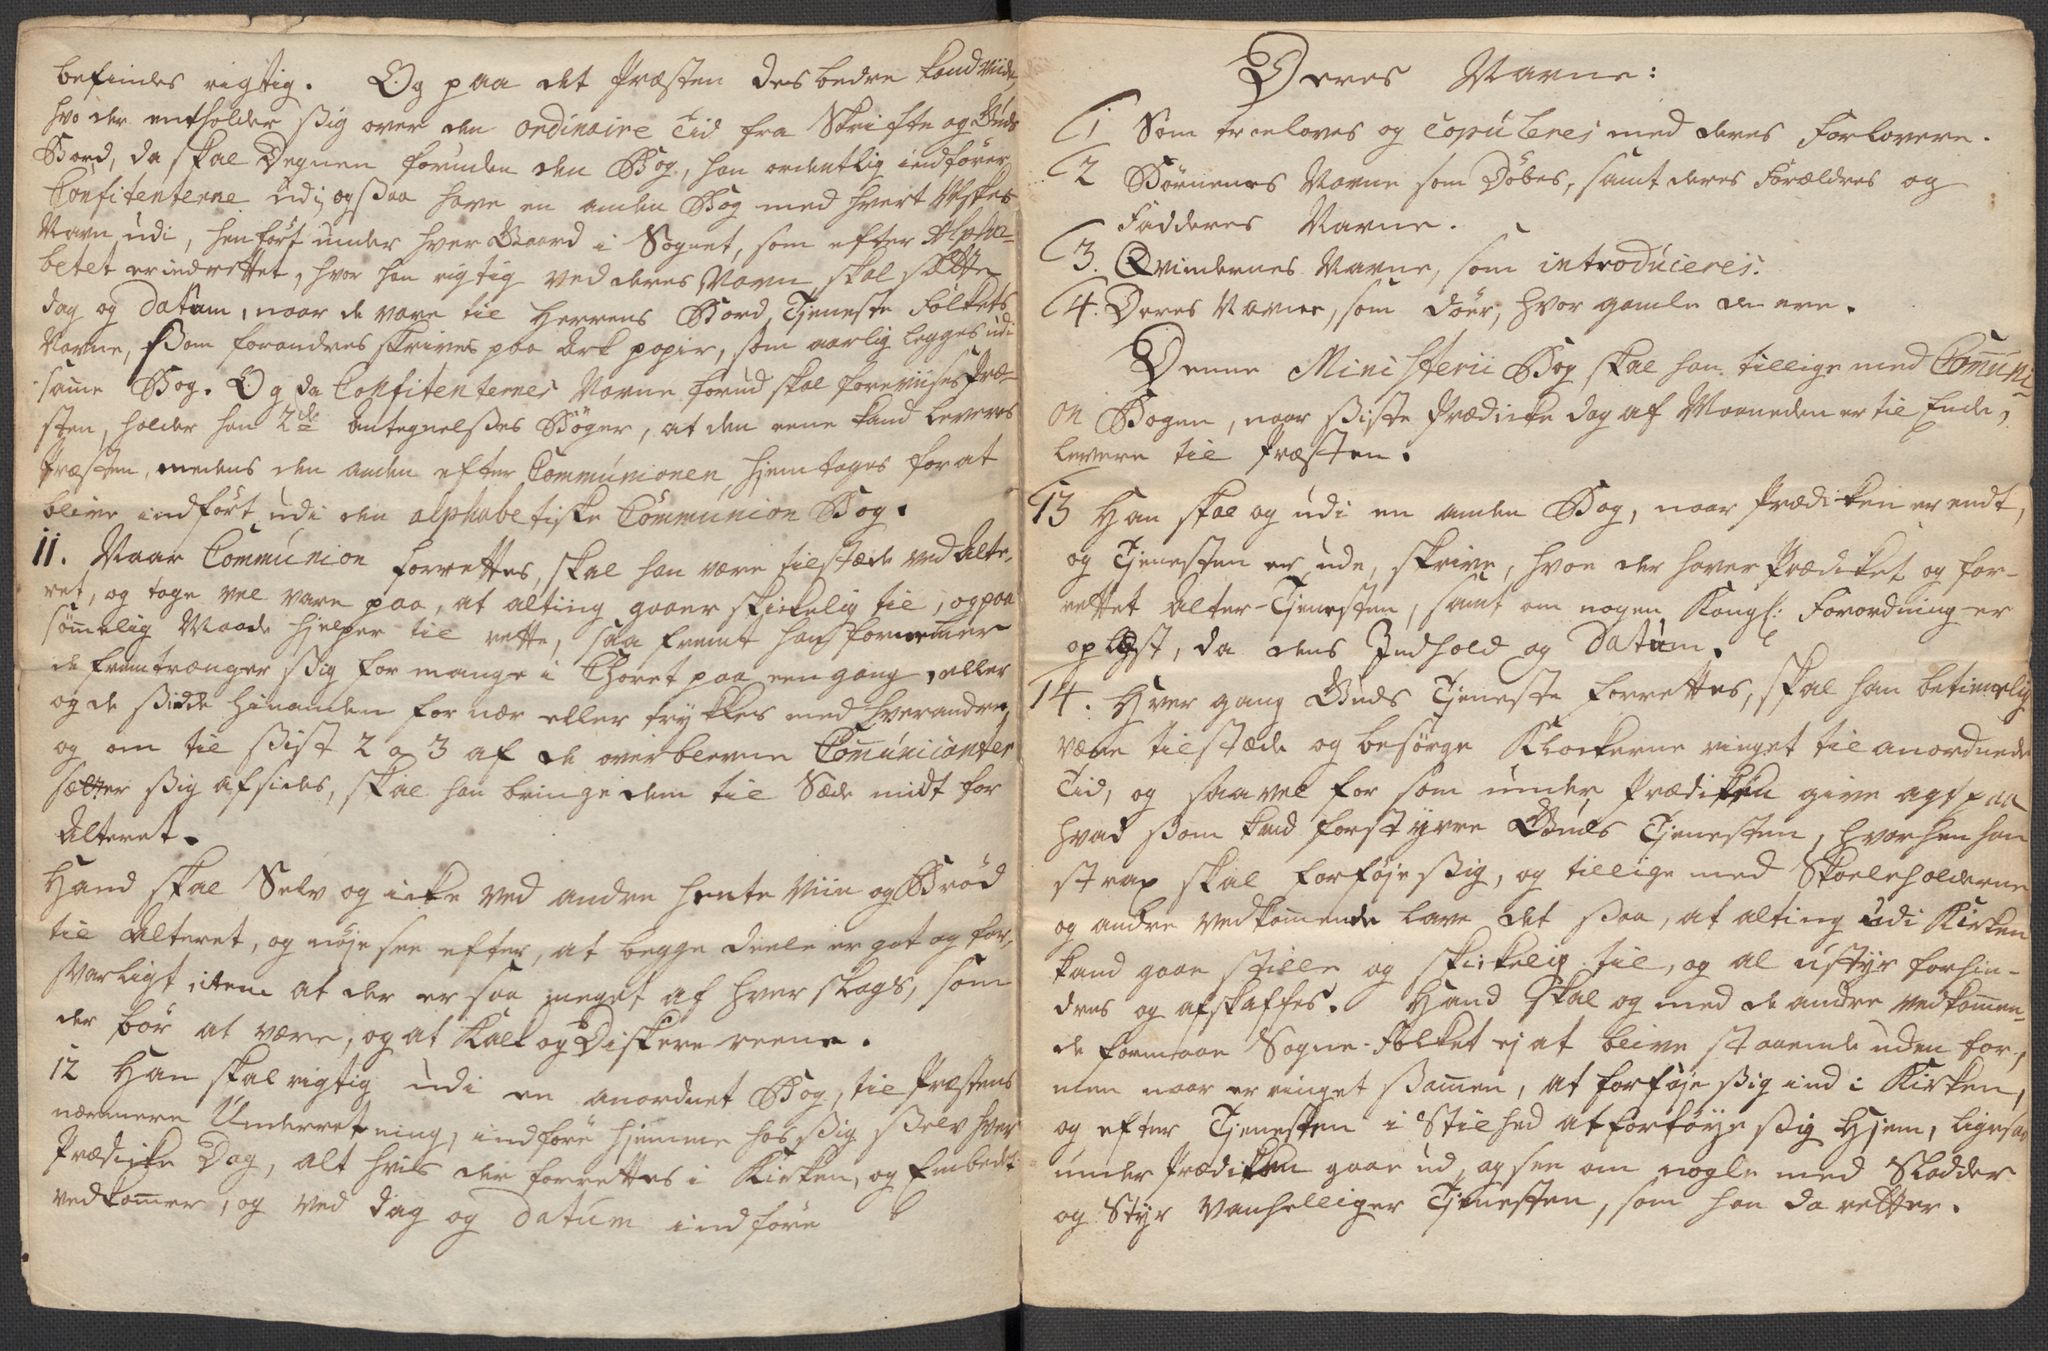 befindes rigtig. Og paa det Præsten des bedre kand viide,
hvo der entholder ßig over den ordinaire Tid fra Skrifte og Guds
Bord, da skal Degnen foruden den Bog, han ordentlig indfører
Confitenterne udi, ogsaa have en anden Bog med hvert
Navn udi, henført under hver Gaard i Sognet, som efter Alpha-
betet er indrettet, hvor han rigtig ved deres Navn skal sætte
dag og datum, naar de vare til Herrens Bord, Tjeneste Folkets
Navne, ßom forandres skrives paa Ark papir, som aarlig legges udi
samme Bog. Og da Confitenternes Navne forud skal foreviises Præ-
sten, holder han 2de Antegnelßes Bøger, at den eene kand leveres
Præsten, medens den anden efter Communionen hjemtages for at
blive indført udi den alphabetiske Communion Bog.
11. Naar Communion forrettes, skal han være tilstæde ved Alte-
ret, og tage vel vare paa, at alting gaaer skikkelig til, og paa
sømmelig Maade hjelper til rette, saa fremt han fornemmer
de fremtrænger ßig for mange i Choret paa een gang, eller
og de ßidde hinanden for nær eller trykkes med hverandre,
og om til ßist 2 a 3 af de overblevne Communicanter
sætter ßig afsides, skal han bringe dem til Sæde midt for
Alteret.
Hand skal Selv og icke ved andre hente Viin og Brød
til Alteret, og nøje see efter, at begge deele er got og for-
svarligt item at der er saa meget af hver slags, som
der bør at være, og at Kalk og Disk ere reene.
12 Han skal rigtig udi en anordnet Bog, til Præstens
nærmere Underretning, indføre hjemme hos ßig ßelv hver
Prædike Dag, alt hvis der forrettes i Kirken, og Embedet
vedkommer, og ved dag og datum indføre
Deres Navne:
1 Som troeloves og copuleres med deres Forlovere.
2 Børnenes Navne som Døbes, samt deres Forældres og
Fadderes Navne.
3. Qvindernes Navne, som introduceres.
4. Deres Navne, som døer, hvor gamle de ere.
Denne Ministerii Bog skal han tillige med Communi-
on Bogen, naar ßiste Prædicke dag af Maaneden er til Ende,
levere til Præsten.
13 Han skal og udi en anden Bog, naar Prædiken er endt,
og Tjenesten er ude, skrive, hvoe der haver Prædiket og for-
rettet Alter-Tjenesten, samt om nogen Kongl: Forordning er
oplæst, da dens Indhold og datum.
14. Hver gang Guds Tjeneste forrettes, skal han betimelig
være tilstæde og besørge Klockerne ringet til anordnede
Tid, og saavel for som under Prædiken give agt paa
hvad ßom kand forstyrre Guds Tjenesten, hvorhen han
strax skal forføje ßig, og tillige med Skoleholderne
og andre vedkommende lave det ßaa, at alting udi Kirken
kand gaae stille og skikkelig til, og al ustyr forhin-
dres og afskaffes. Hand skal og med de andre vedkommen-
de formaae Sogne-Folket ej at blive staaende uden for,
men naar er ringet ßammen, at forføje ßig ind i Kirken,
og efter Tjenesten i Stilhed at forføye ßig hjem, ligesaa
under Prædiken gaae ud, og see om nogle med Sladder
og Styr vanhelliger Tjenesten, som han da retter.